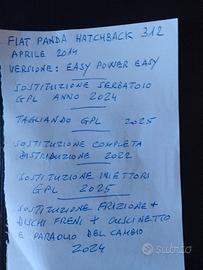 FIAT PANDA HATCHBACK 312
APRILE 2014
VERSIONE: EASY POWER EASY
SOSTITUZIONE SERBATOIO
GPL ANNO 2024
TAGLIANDO GPL 2025
SOSTITUZIONE COMPLETA
DISTRIBUZIONE 2022
SOSTITUZIONE INIETTORI
GPL 2025
SOSTITUZIONE FRIZIONE +
DISCHI FRENI + CUSCINETTO
E PARAOLIO DEL CAMBIO
2024
subito